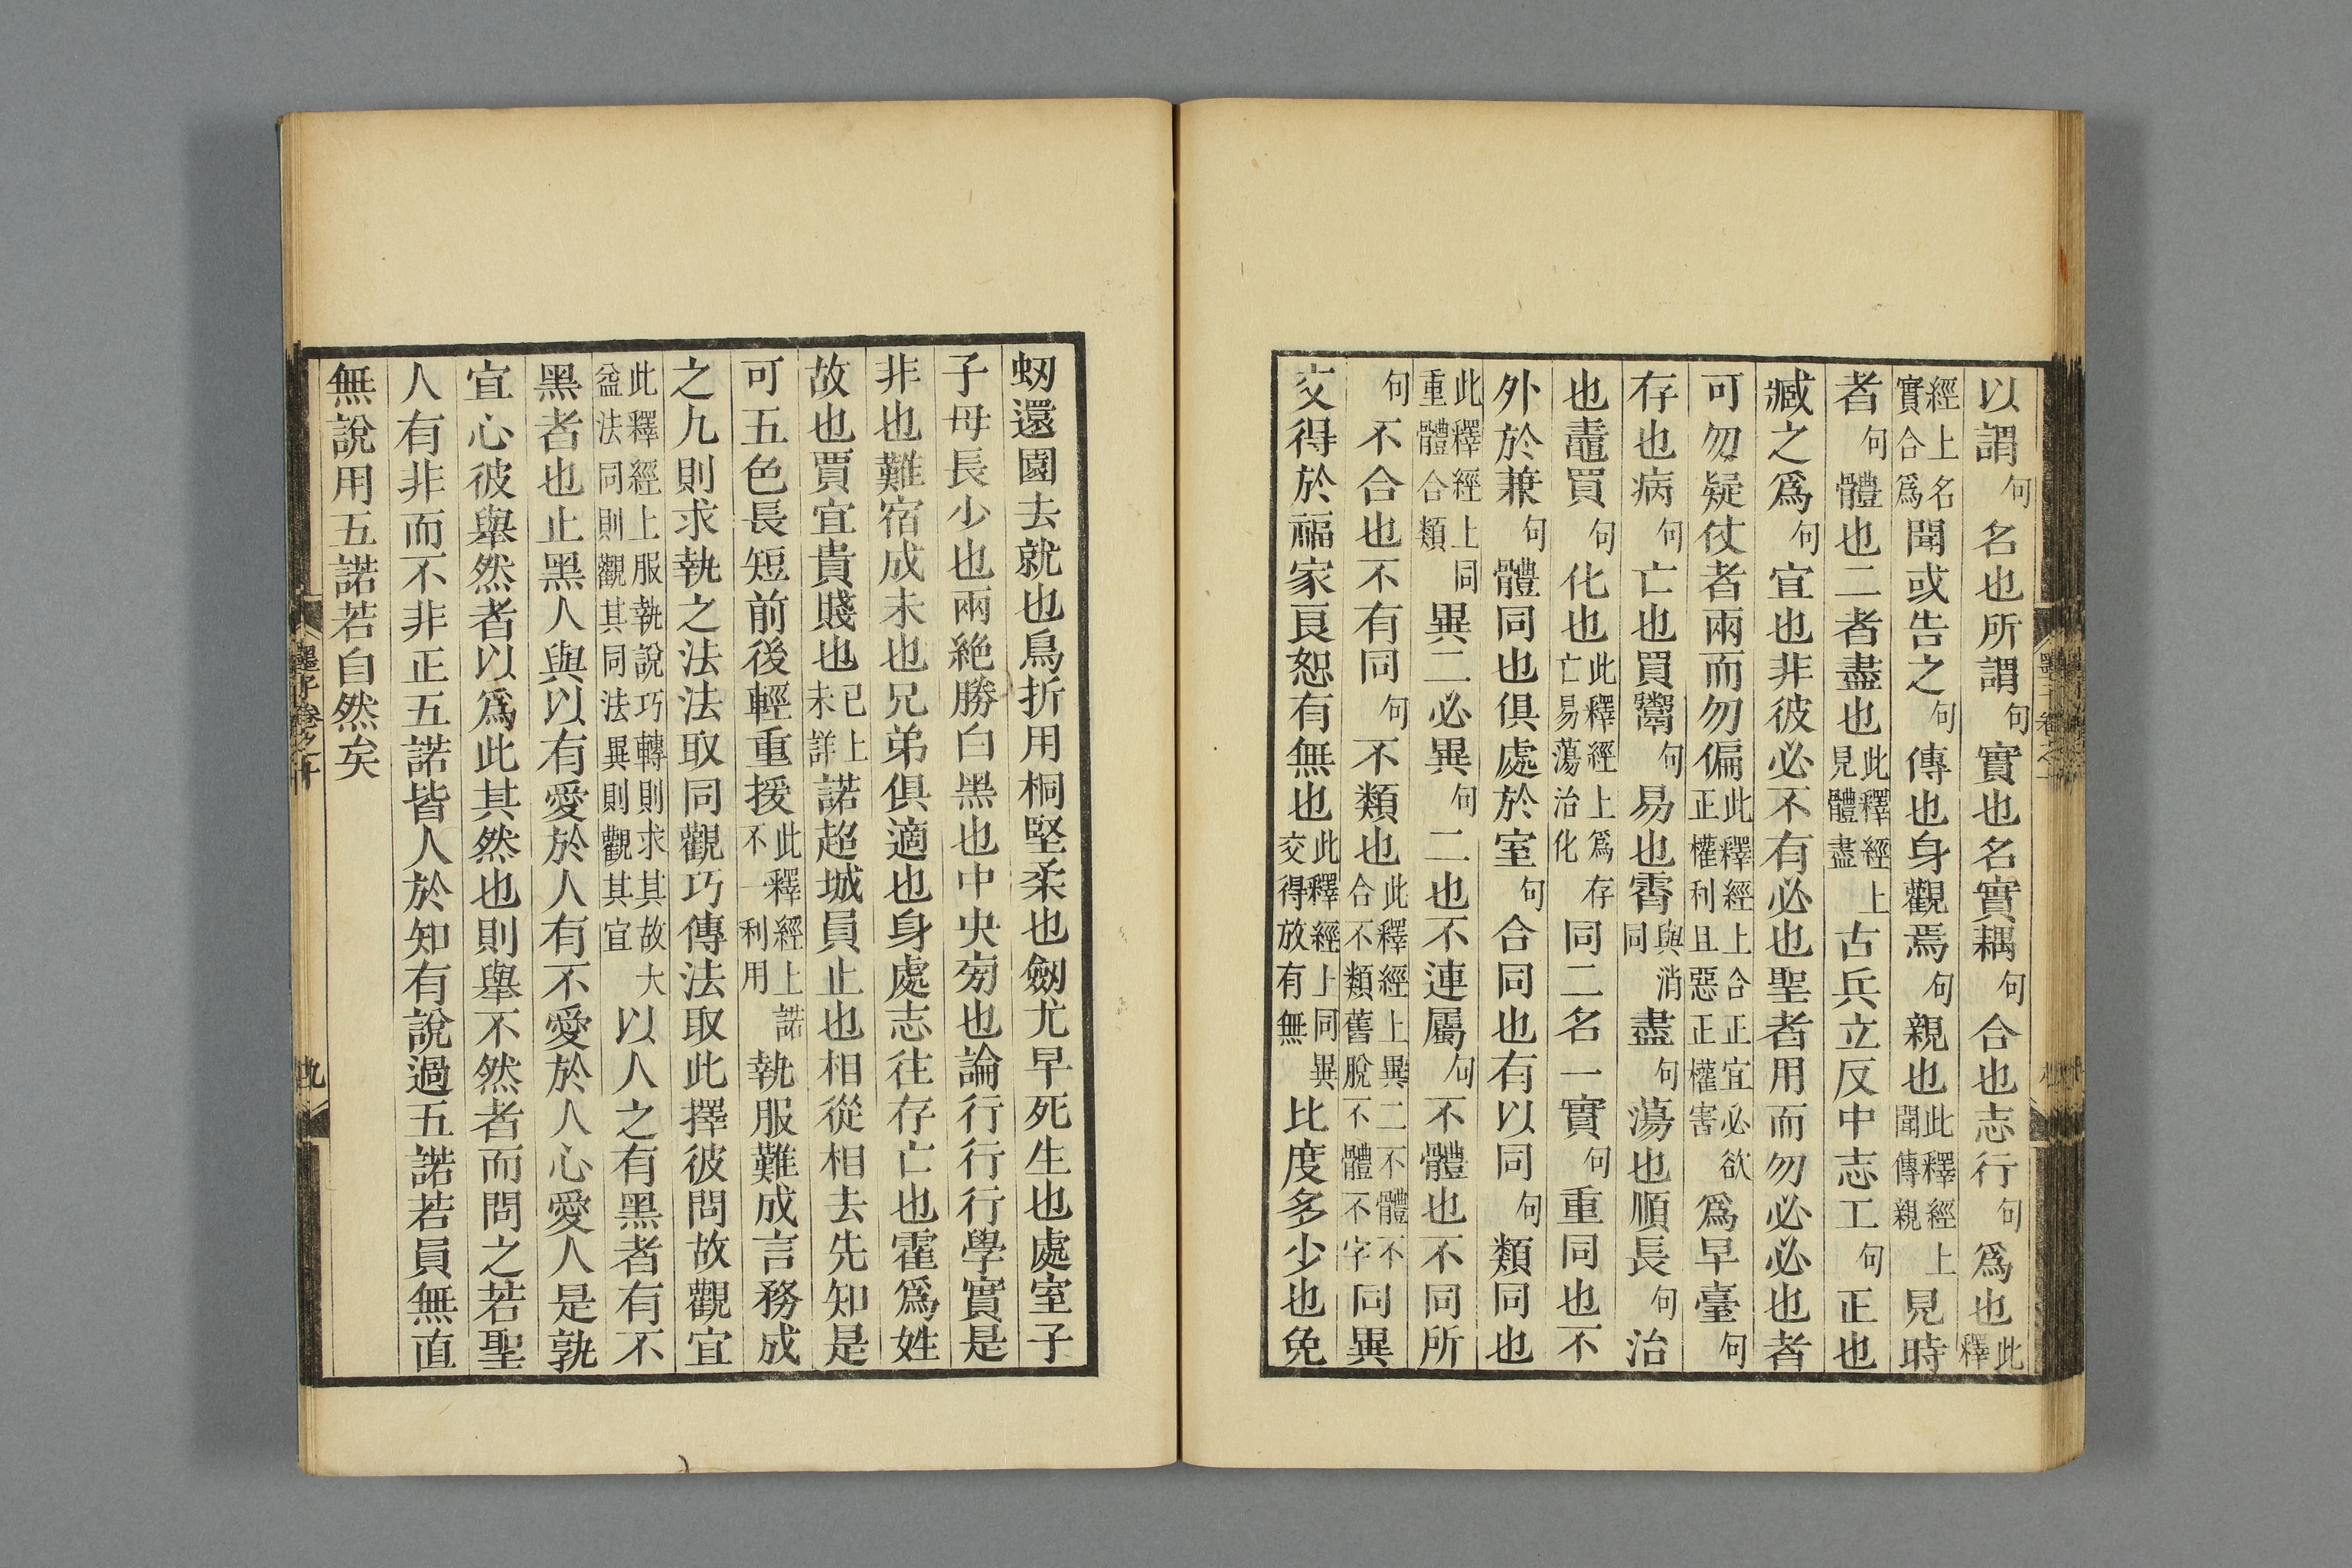 以謂句名也所謂句實也名實耦句合也志行句爲也此釋
經上名實合爲聞或告之句傳也身觀焉句親也此釋經上聞傳親見時
者句體也二者盡也此釋經上見體盡古兵立反中志工句正也
臧之爲句宜也非彼必不有必也聖者用而勿必必也者
可勿疑仗者兩而勿偏此釋經上合正宜必欲正權利且惡正權害爲早臺句
存也病句亡也買鬻句易也霄與消同盡句蕩也順長句治
也鼃買句化也此釋經上爲存亡易蕩治化同二名一實句重同也不
外於兼句體同也俱處於室句合同也有以同句類同也
此釋經上同重體合類異二必異句二也不連屬句不體也不同所
句不合也不有同句不類也此釋經上異二不體不合不類舊脫不體不字同異
交得於福家良恕有無也此釋經上同異交得放有無比度多少也免
蚓還園去就也鳥折用桐堅柔也劒尤早死生也處室子
子母長少也兩絶勝白黑也中央旁也論行行行學實是
非也難宿成未也兄弟俱適也身處志往存亡也霍爲姓
故也賈宜貴賤也已上未詳諾超城員止也相從相去先知是
可五色長短前後輕重援此釋經上諾不一利用執服難成言務成
之九則求執之法法取同觀巧傳法取此擇彼問故觀宜
此釋經上服執說巧轉則求其故大益法同則觀其同法異則觀其宜以人之有黑者有不
黑者也止黑人與以有愛於人有不愛於人心愛人是孰
宜心彼舉然者以爲此其然也則舉不然者而問之若聖
人有非而不非正五諾皆人於知有說過五諾若員無直
無說用五諾若自然矣
墨子卷之十
九